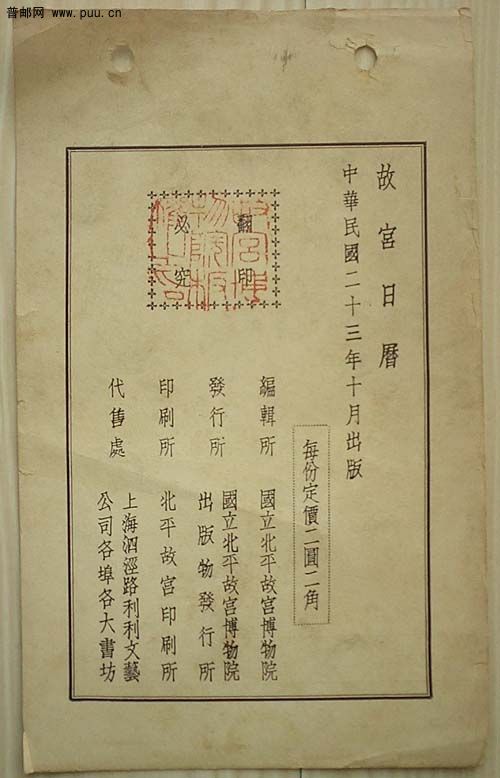 普邮网 www.puu.cn
故宮日曆
中華民國二十三年十月出版
每份定價二圓二角
翻印
必究
編輯所 國立北平故宮博物院
發行所 國立北平故宮博物院
出版物發行所
印刷所 北平故宮印刷所
代售處 上海泗涇路利利文藝
公司各埠各大書坊